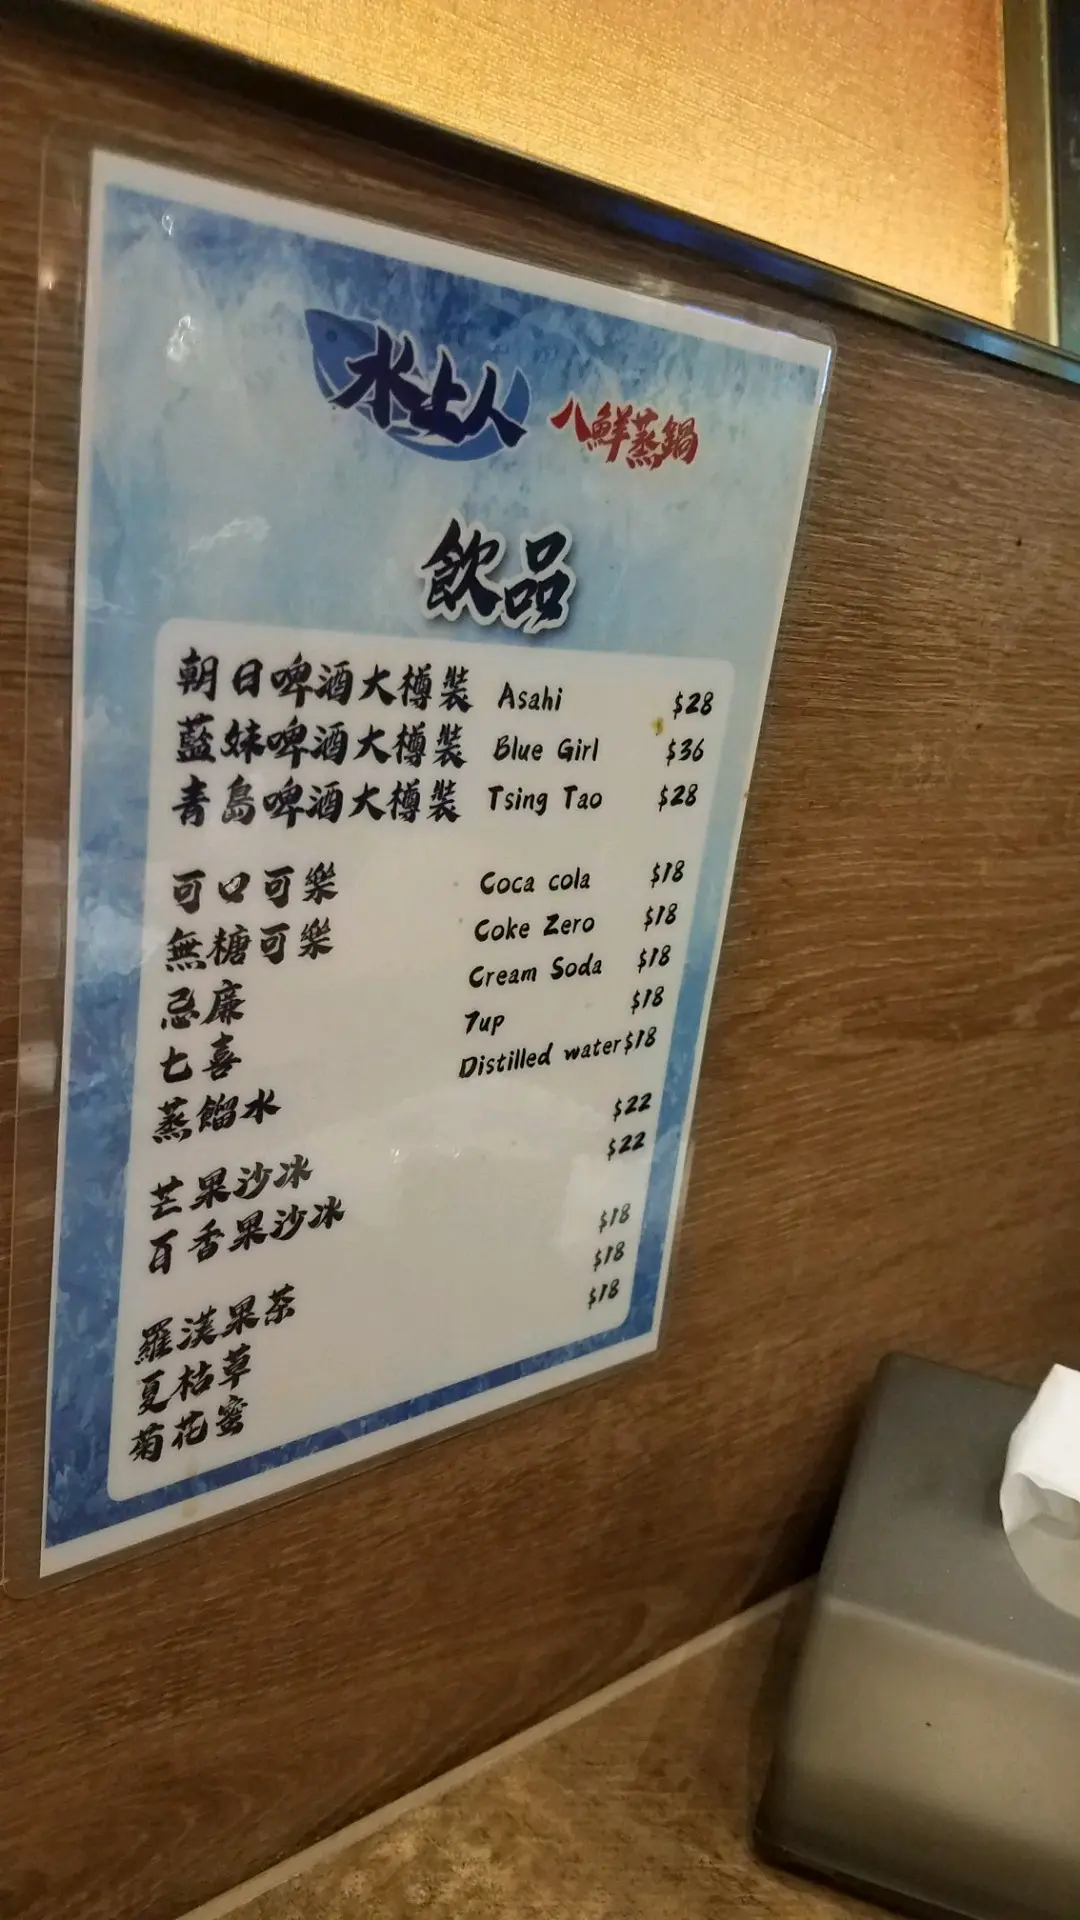 水上人 八鮮蒸鍋
飲品
朝日啤酒大樽裝 Asahi $28
藍妹啤酒大樽裝 Blue Girl $36
青島啤酒大樽裝 Tsing Tao $28
可口可樂 Coca cola $18
無糖可樂 Coke Zero $18
忌廉 Cream Soda $18
七喜 7up $18
蒸餾水 Distilled water $18
芒果沙冰 $22
百香果沙冰 $22
羅漢果茶 $18
夏枯草 $18
菊花蜜 $18